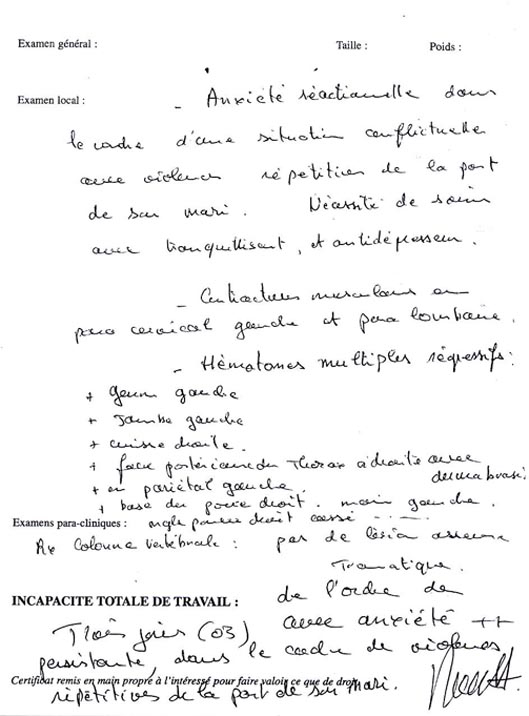 Examen général :    Taille :    Poids :
Examen local :    - Anxiété réactionnelle dans
le cadre d'une situation conflictuelle
avec violences répétitives de la part
de son mari. Nécessité de soins
avec tranquillisant, et antidépresseur.
- Contractures musculaires en
para cervical gauche et para lombaire.
- Hématomes multiples régressifs :
+ genou gauche
+ Jambe gauche
+ cuisse droite.
+ face postérieure du Thorax à droite avec
dermabrasi
+ en pariétal gauche
+ base du pouce droit. main gauche.
Examens para-cliniques : ongle pouce droit cassé
Rx Colonne vertébrale : pas de lésion osseuse
Tromatique.
INCAPACITE TOTALE DE TRAVAIL : de l'ordre de
Trois jours (03) avec anxiété ++
persistante, dans le cadre de violences
Certificat remis en main propre à l'intéressé pour faire valoir ce que de droit.
répétitives de la part de son mari.